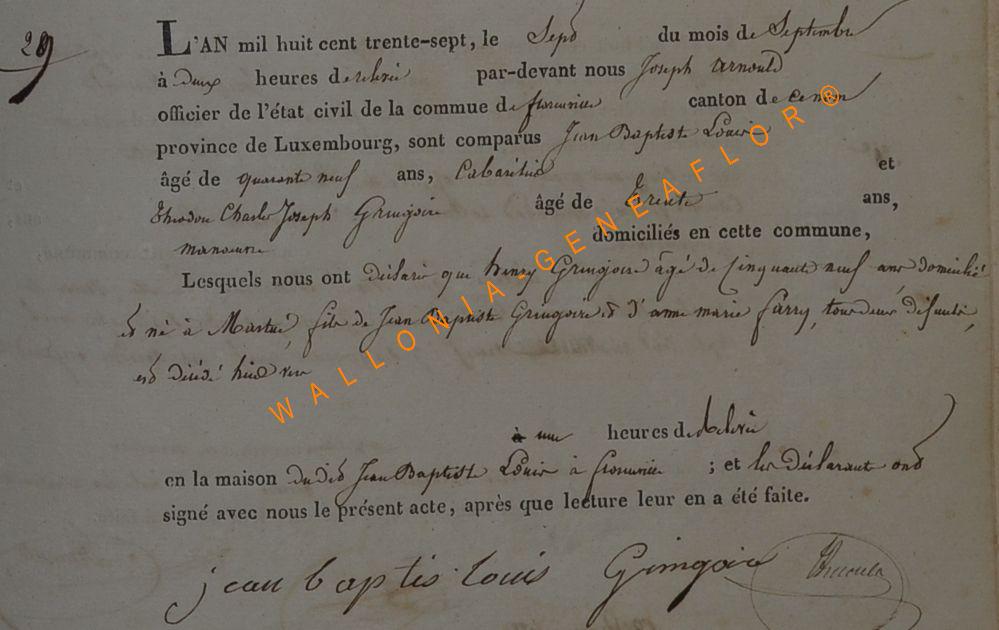 289
L'AN mil huit cent trente-sept, le Sept du mois de Septembre
à deux heures de relevée par-devant nous Joseph Arnould
officier de l'état civil de la commue de florenville canton de
province de Luxembourg, sont comparus Jean Baptiste Louis
âgé de quarante neuf ans, Cabaretier et
Theodore Charles Joseph Gringoire âgé de trente ans,
manoeuvre domiciliés en cette commune,
Lesquels nous ont déclaré que henry Gringoire âgé de Cinquante neuf ans domicilié
et né à Martué, fils de Jean Baptiste Gringoire & d'anne marie farry, tous deux défunts,
est décédé hier vers
à une heures de Relevée
en la maison dudit Jean Baptiste Louis à florenville ; et les déclarant ont
signé avec nous le présent acte, après que lecture leur en a été faite.
jean baptis louis Gringoire
WALLONIA-GENEAFLOR®